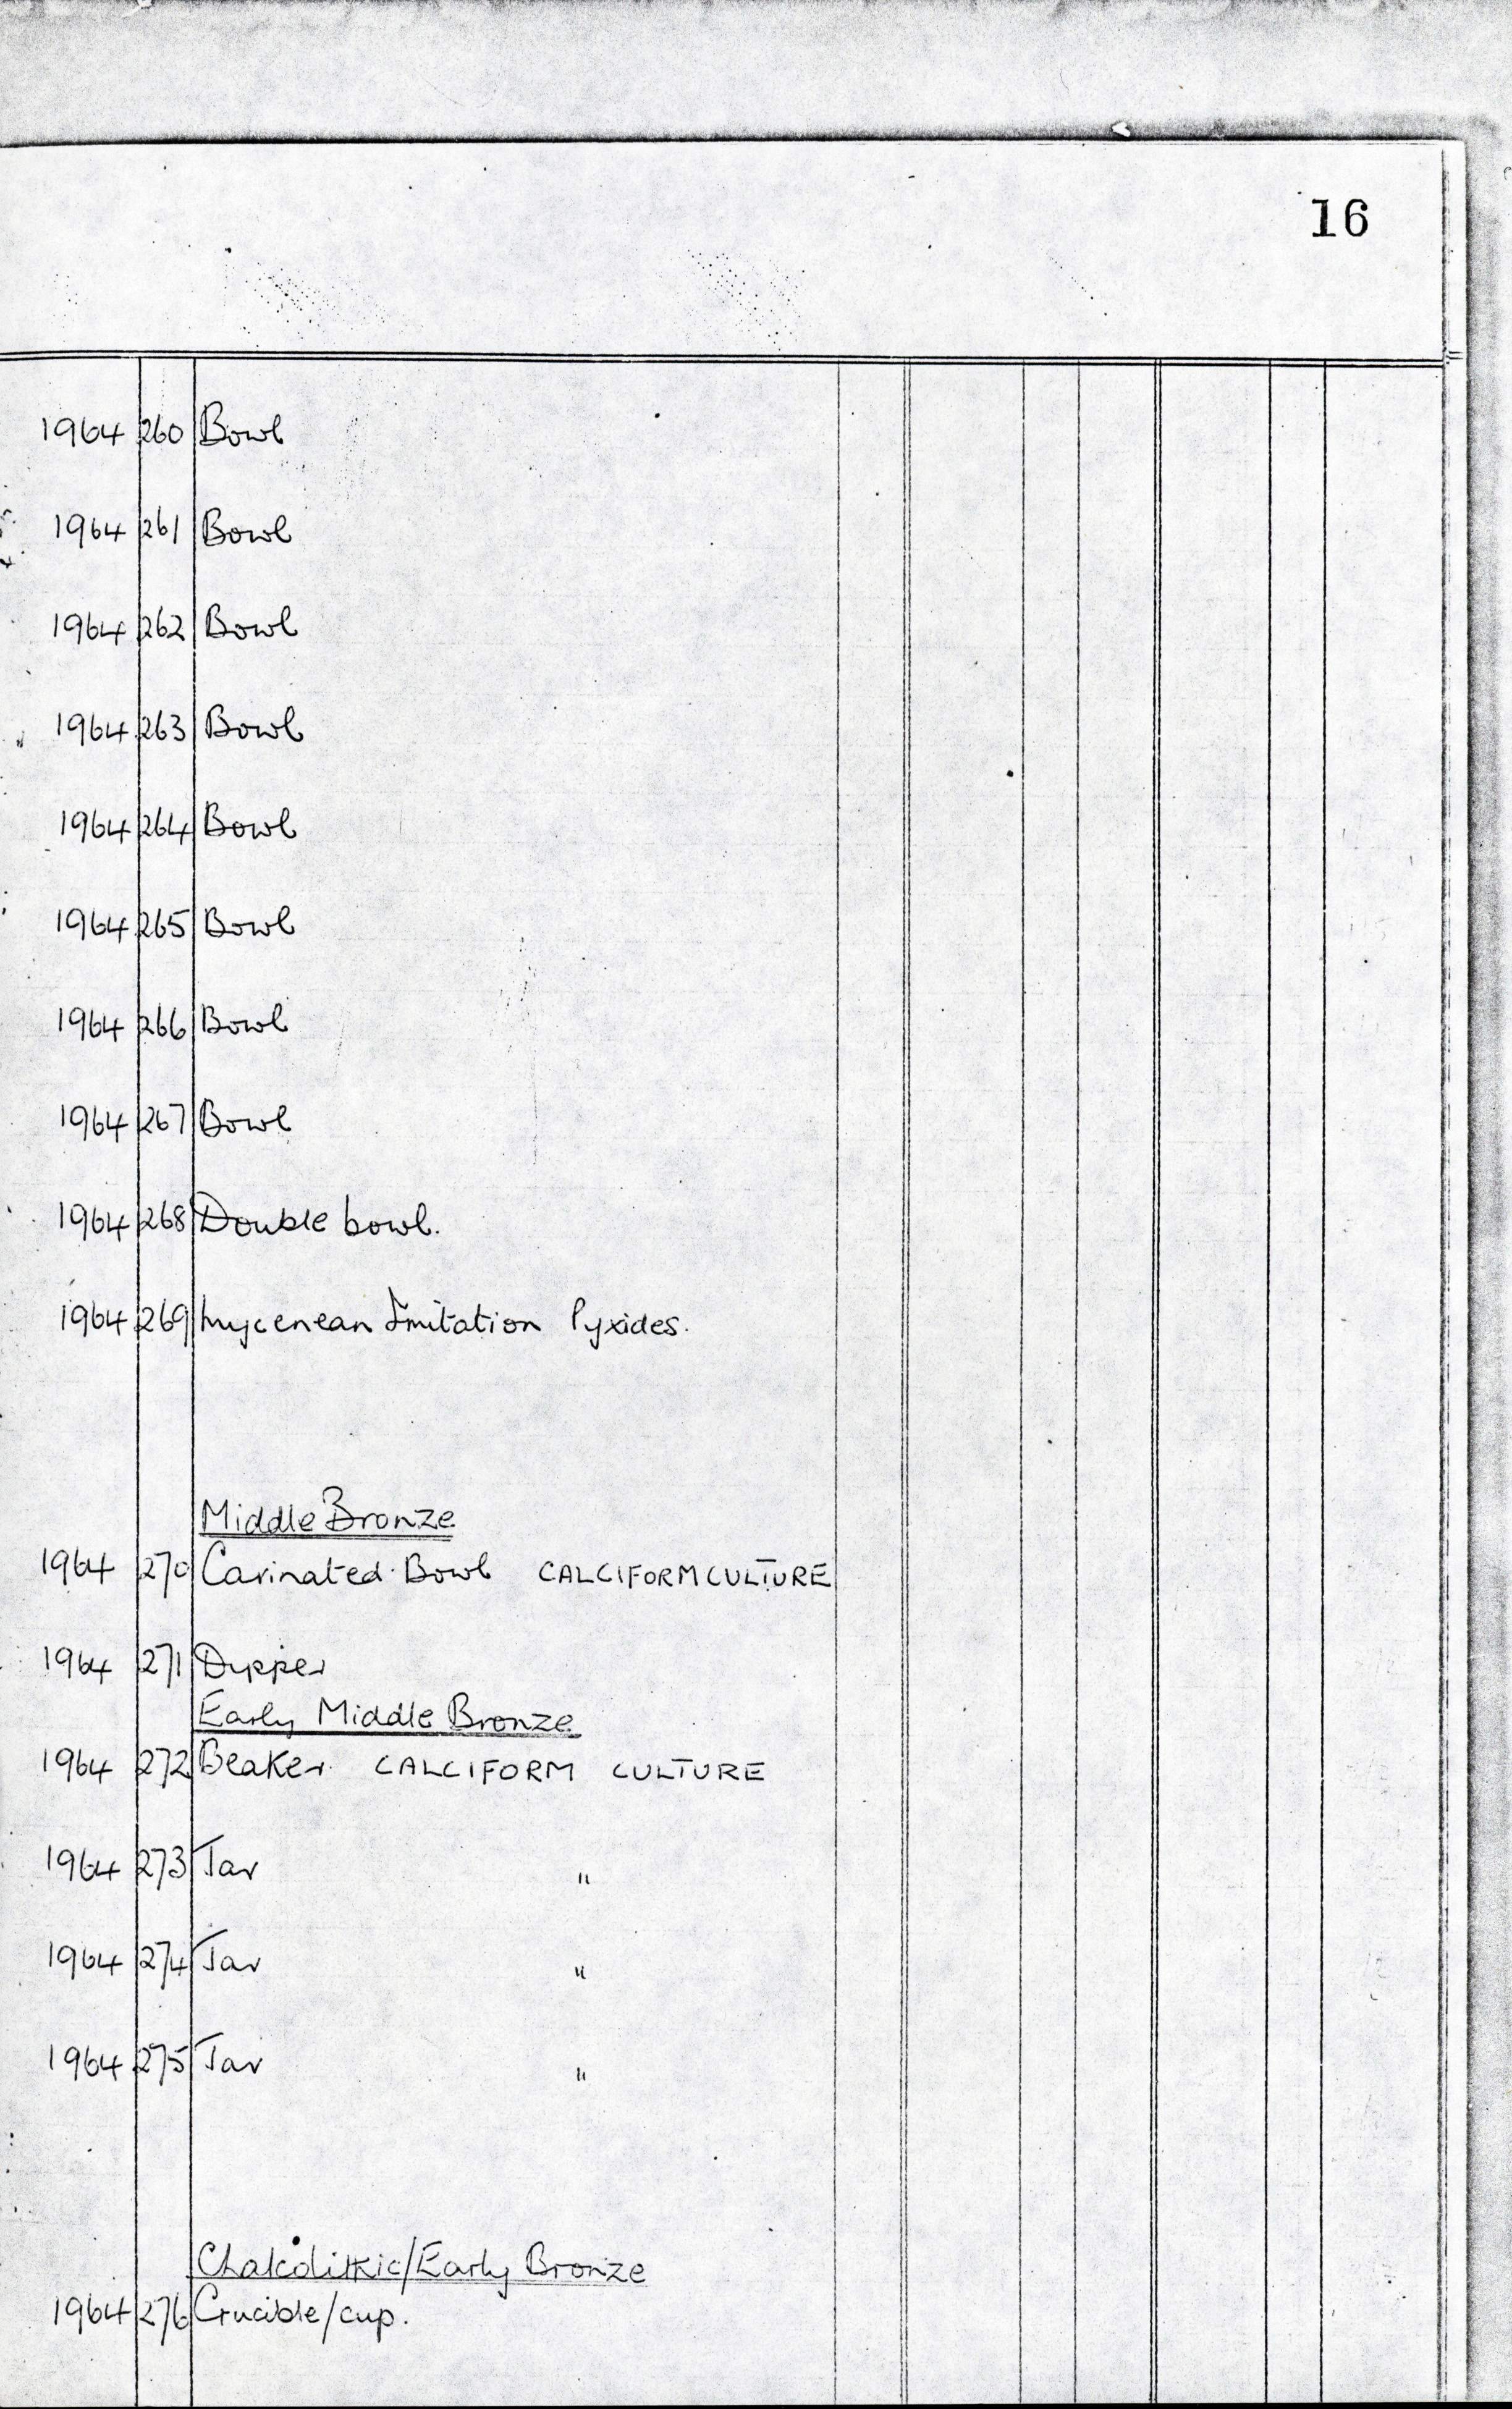 16
1964 260 Bowl
1964 261 Bowl
1964 262 Bowl
1964 263 Bowl
1964 264 Bowl
1964 265 Bowl
1964 266 Bowl
1964 267 Bowl
1964 268 Double bowl.
1964 269 Mycenean Imitation Pyxides.
Middle Bronze
1964 270 Carinated Bowl CALCIFORM CULTURE
1964 271 Dipper
Early Middle Bronze
1964 272 Beaker CALCIFORM CULTURE
1964 273 Jar "
1964 274 Jar "
1964 275 Jar "
Chalcolithic/Early Bronze
1964 276 Crucible/cup.